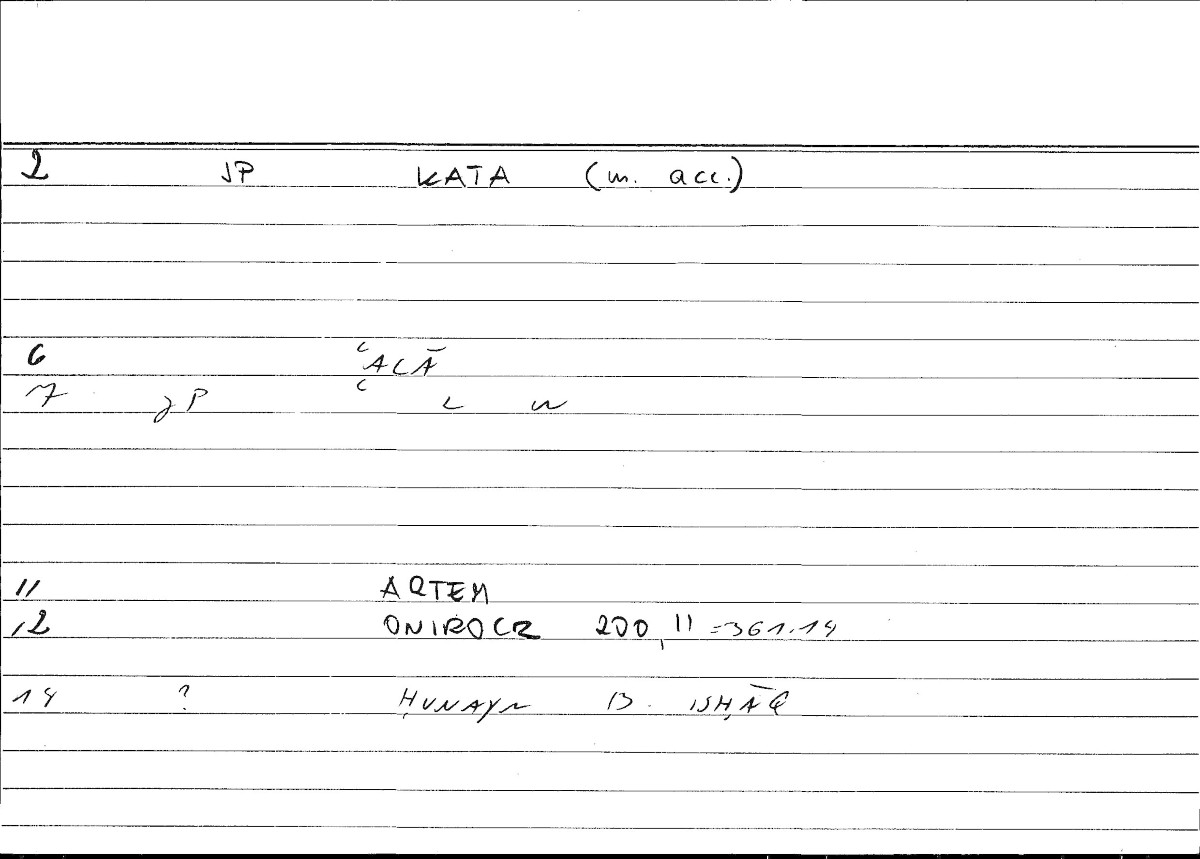 2 JP KATA (m. acc.)
6 ʿALĀ
7 JP ʿ L W
11 ARTEM
12 ONIROCR 200, 11 = 361.14
14 ? ḤUNAYN B. ISḤĀQ